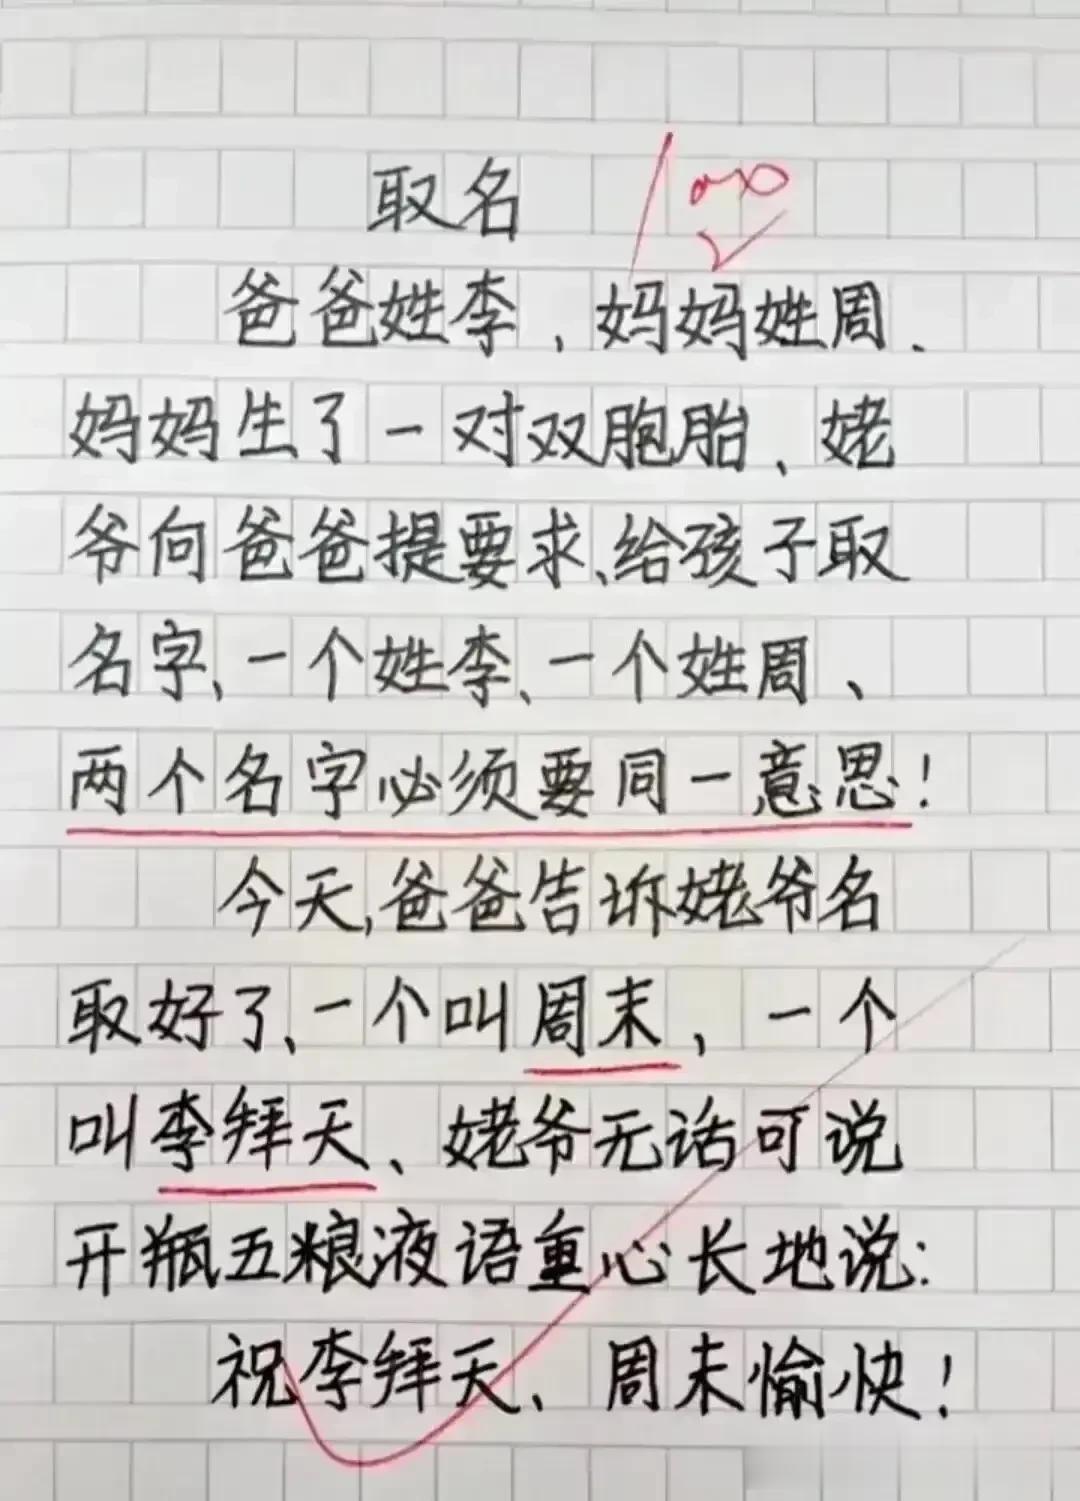 取名
爸爸姓李、妈妈姓周、
妈妈生了一对双胞胎、姥
爷向爸爸提要求、给孩子取
名字、一个姓李、一个姓周、
两个名字必须要同一意思!
今天,爸爸告诉姥爷名
取好了、一个叫周末、一个
叫李拜天、姥爷无话可说
开瓶五粮液语重心长地说:
祝李拜天、周末愉快!